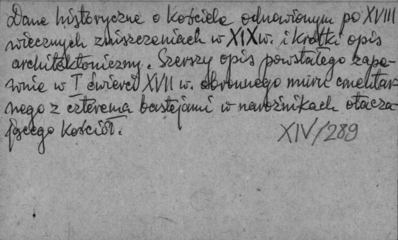 Dane historyczne o kościele odnowionym po XVIII
wiecznych zniszczeniach w XIX w. i krótki opis
architektoniczny. Szerszy opis powstałego zape-
wnie w I ćwierci XVII w. obronnego muru cmentar-
nego z czterema bastejami w narożnikach otacza-
jącego kościół.
XIV/289